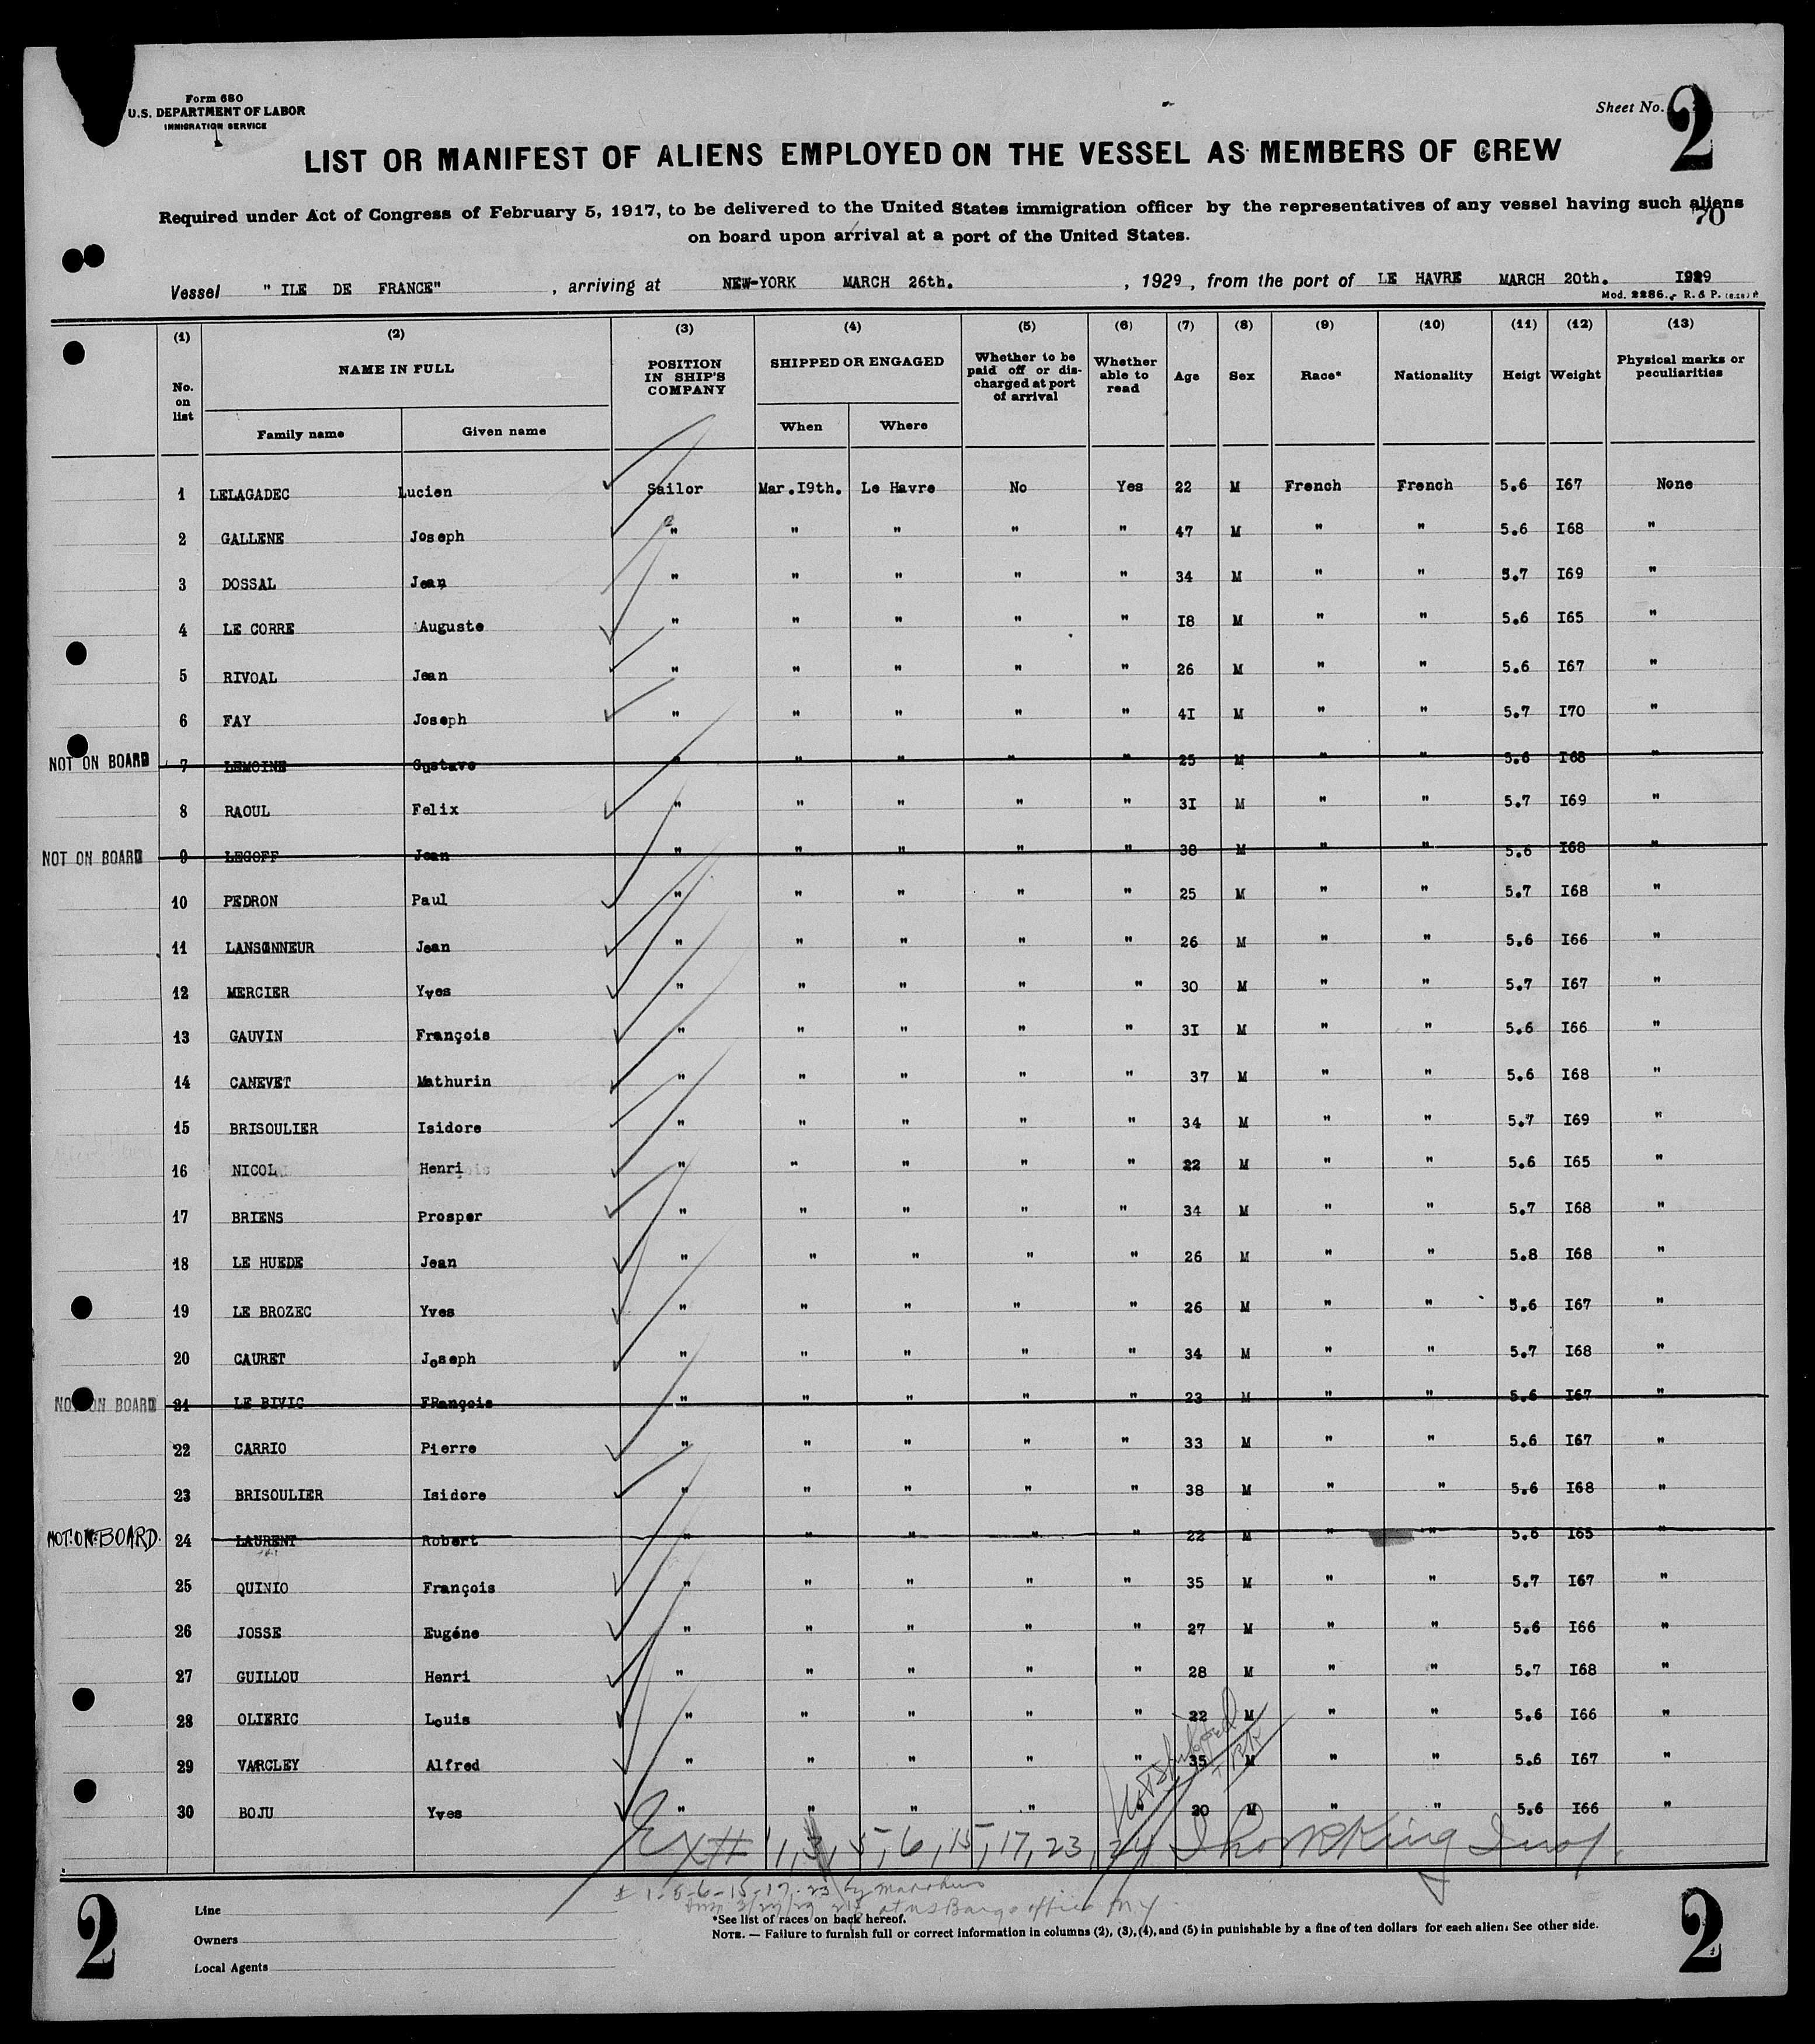 Form 680
U.S. DEPARTMENT OF LABOR
IMMIGRATION SERVICE
Sheet No. 2
LIST OR MANIFEST OF ALIENS EMPLOYED ON THE VESSEL AS MEMBERS OF CREW
Required under Act of Congress of February 5, 1917, to be delivered to the United States immigration officer by the representatives of any vessel having such aliens
70
on board upon arrival at a port of the United States.
Vessel " ILE DE FRANCE" , arriving at NEW-YORK MARCH 26th. , 1929 , from the port of LE HAVRE MARCH 20th. I929
Mod. 2286. - R. & P.
(1) (2) (3) (4) (5) (6) (7) (8) (9) (10) (11) (12) (13)
No. on list NAME IN FULL POSITION IN SHIP'S COMPANY SHIPPED OR ENGAGED Whether to be paid off or discharged at port of arrival Whether able to read Age Sex Race* Nationality Heigt Weight Physical marks or peculiarities
Family name Given name When Where
1 LELAGADEC Lucien Sailor Mar.I9th. Le Havre No Yes 22 M French French 5.6 I67 None
2 GALLENE Joseph " " " " " 47 M " " 5.6 I68 "
3 DOSSAL Jean " " " " " 34 M " " 5.7 I69 "
4 LE CORRE Auguste " " " " " I8 M " " 5.6 I65 "
5 RIVOAL Jean " " " " " 26 M " " 5.6 I67 "
6 FAY Joseph " " " " " 4I M " " 5.7 I70 "
NOT ON BOARD 7 LEMOINE Gustave " " " " " 25 M " " 5.6 I68 "
8 RAOUL Felix " " " " " 3I M " " 5.7 I69 "
NOT ON BOARD 9 LEGOFF Jean " " " " " 38 M " " 5.6 I68 "
10 PEDRON Paul " " " " " 25 M " " 5.7 I68 "
11 LANSONNEUR Jean " " " " " 26 M " " 5.6 I66 "
12 MERCIER Yves " " " " " 30 M " " 5.7 I67 "
13 GAUVIN François " " " " " 3I M " " 5.6 I66 "
14 CANEVET Mathurin " " " " " 37 M " " 5.6 I68 "
15 BRISOULIER Isidore " " " " " 34 M " " 5.7 I69 "
16 NICOL Henri " " " " " 22 M " " 5.6 I65 "
17 BRIENS Prosper " " " " " 34 M " " 5.7 I68 "
18 LE HUEDE Jean " " " " " 26 M " " 5.8 I68 "
19 LE BROZEC Yves " " " " " 26 M " " 5.6 I67 "
20 CAURET Joseph " " " " " 34 M " " 5.7 I68 "
NOT ON BOARD 21 LE BIVIC FRançois " " " " " 23 M " " 5.6 I67 "
22 CARRIO Pierre " " " " " 33 M " " 5.6 I67 "
23 BRISOULIER Isidore " " " " " 38 M " " 5.6 I68 "
NOT ON BOARD. 24 LAURENT Robert " " " " " 22 M " " 5.6 I65 "
25 QUINIO François " " " " " 35 M " " 5.7 I67 "
26 JOSSE Eugéne " " " " " 27 M " " 5.6 I66 "
27 GUILLOU Henri " " " " " 28 M " " 5.7 I68 "
28 OLIERIC Louis " " " " " 22 M " " 5.6 I66 "
29 VARCLEY Alfred " " " " " 35 M " " 5.6 I67 "
30 BOJU Yves " " " " " 20 M " " 5.6 I66 "
Ex # 1, 3, 5, 6, 15, 17, 23, 24 King Insp.
1-5-6-15-17-23 by
3/27/29 at Barge office N.Y.
2 2
Line
Owners
Local Agents
*See list of races on back hereof.
NOTE. — Failure to furnish full or correct information in columns (2), (3), (4), and (5) in punishable by a fine of ten dollars for each alien. See other side.